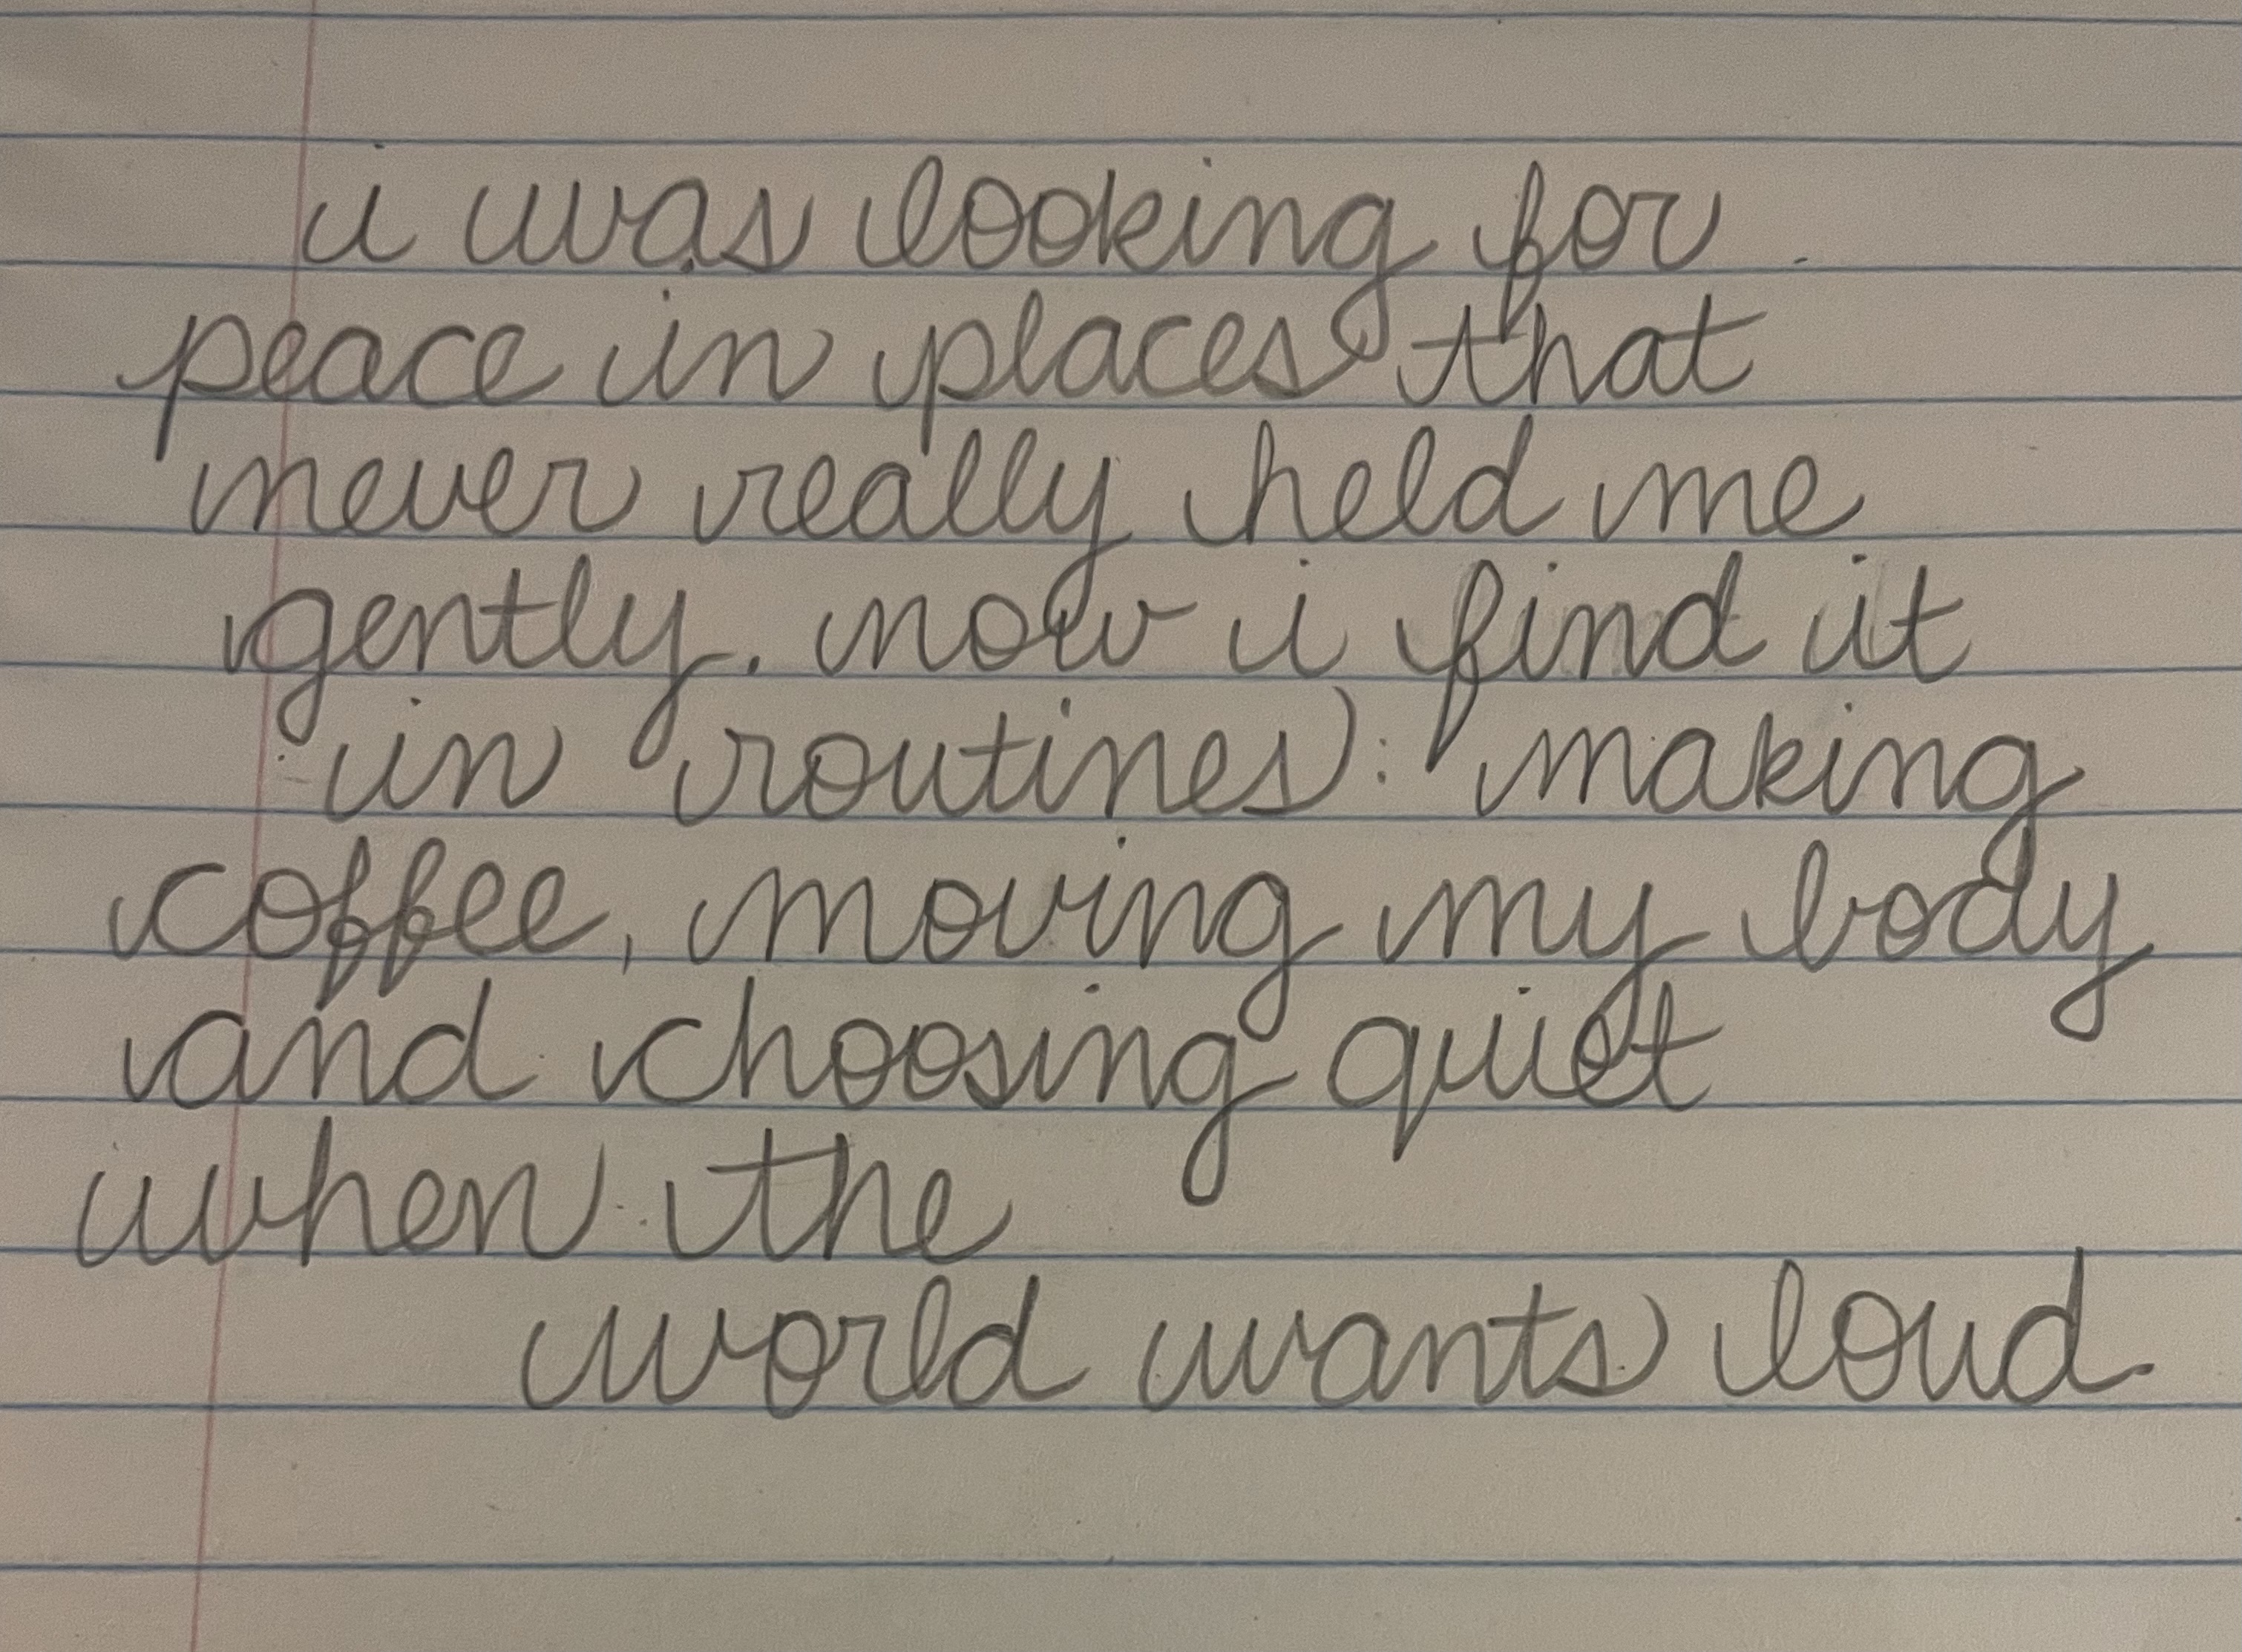 i was looking for
peace in places that
never really held me
gently. now i find it
in routines: making
coffee, moving my body
and choosing quiet
when the
world wants loud